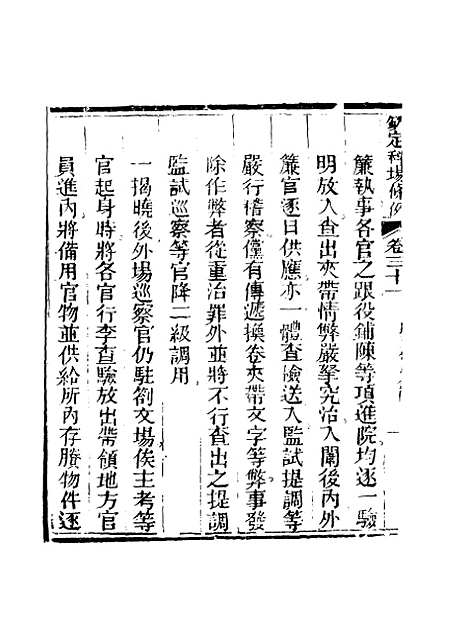 欽定科場條例 卷三十一
簾執事各官之跟役鋪陳等項進院均逐一驗
明放入查出夾帶情弊嚴拏究治入闈後內外
簾官逐日供應亦一體查檢送入監試提調等
嚴行稽察僅有傳遞換卷夾帶文字等弊事發
除作弊者從重治罪外並將不行查出之提調
監試巡察等官降二級調用
一揭曉後外場巡察官仍駐劄文場俟主考等
官起身時將各官行李查驗放出帶領地方官
員進內將備用官物並供給所內存賸物件逐